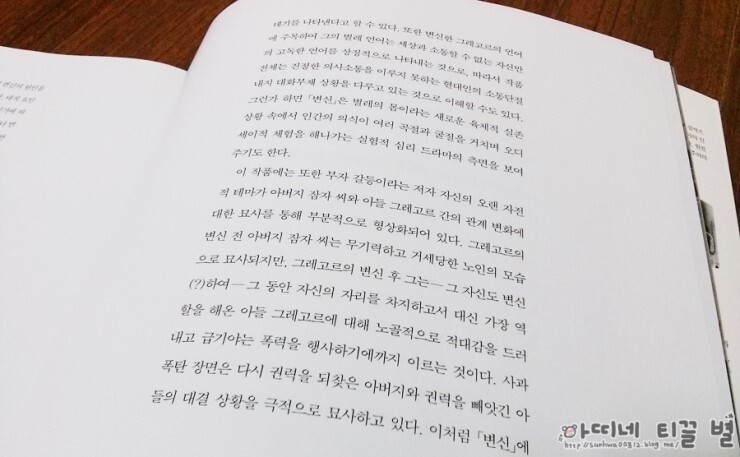 태기를 나타낸다고 할 수 있다. 또한 변신한 그레고르의 언어
에 주목하여 그의 벌레 언어는 세상과 소통할 수 없는 자신만
의 고독한 언어를 상징적으로 나타내는 것으로, 따라서 작품
전체는 진정한 의사소통을 이루지 못하는 현대인의 소통단절
내지 대화부재 상황을 다루고 있는 것으로 이해할 수도 있다.
그런가 하면 「변신」은 벌레의 몸이라는 새로운 육체적 실존
상황 속에서 인간의 의식이 여러 곡절과 굴절을 거치며 오디
세이적 체험을 해나가는 실험적 심리 드라마의 측면을 보여
주기도 한다.
이 작품에는 또한 부자 갈등이라는 저자 자신의 오랜 자전
적 테마가 아버지 잠자 씨와 아들 그레고르 간의 관계 변화에
대한 묘사를 통해 부분적으로 형상화되어 있다. 그레고르의
변신 전 아버지 잠자 씨는 무기력하고 거세당한 노인의 모습
으로 묘사되지만, 그레고르의 변신 후 그는—그 자신도 변신
(?)하여—그 동안 자신의 자리를 차지하고서 대신 가장 역
할을 해온 아들 그레고르에 대해 노골적으로 적대감을 드러
내고 급기야는 폭력을 행사하기에까지 이르는 것이다. 사과
폭탄 장면은 다시 권력을 되찾은 아버지와 권력을 빼앗긴 아
들의 대결 상황을 극적으로 묘사하고 있다. 이처럼 「변신」에
아띠네 티끌 별
http://sunhwa00812.blog.me/